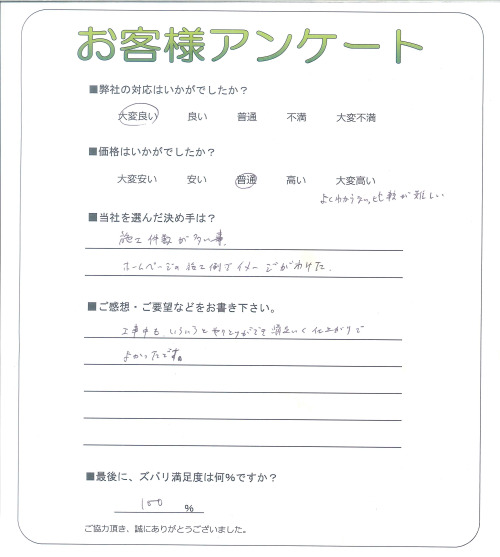 お客様アンケート
■弊社の対応はいかがでしたか？
大変良い 良い 普通 不満 大変不満
■価格はいかがでしたか？
大変安い 安い 普通 高い 大変高い
よくわからない。比較が難しい
■当社を選んだ決め手は？
施工件数が多い事。
ホームページの施工例でイメージがわけた。
■ご感想・ご要望などをお書き下さい。
工事中もいろいろとやりとりができ満足いく仕上がりで
よかったです。
■最後に、ズバリ満足度は何％ですか？
100 ％
ご協力頂き、誠にありがとうございました。